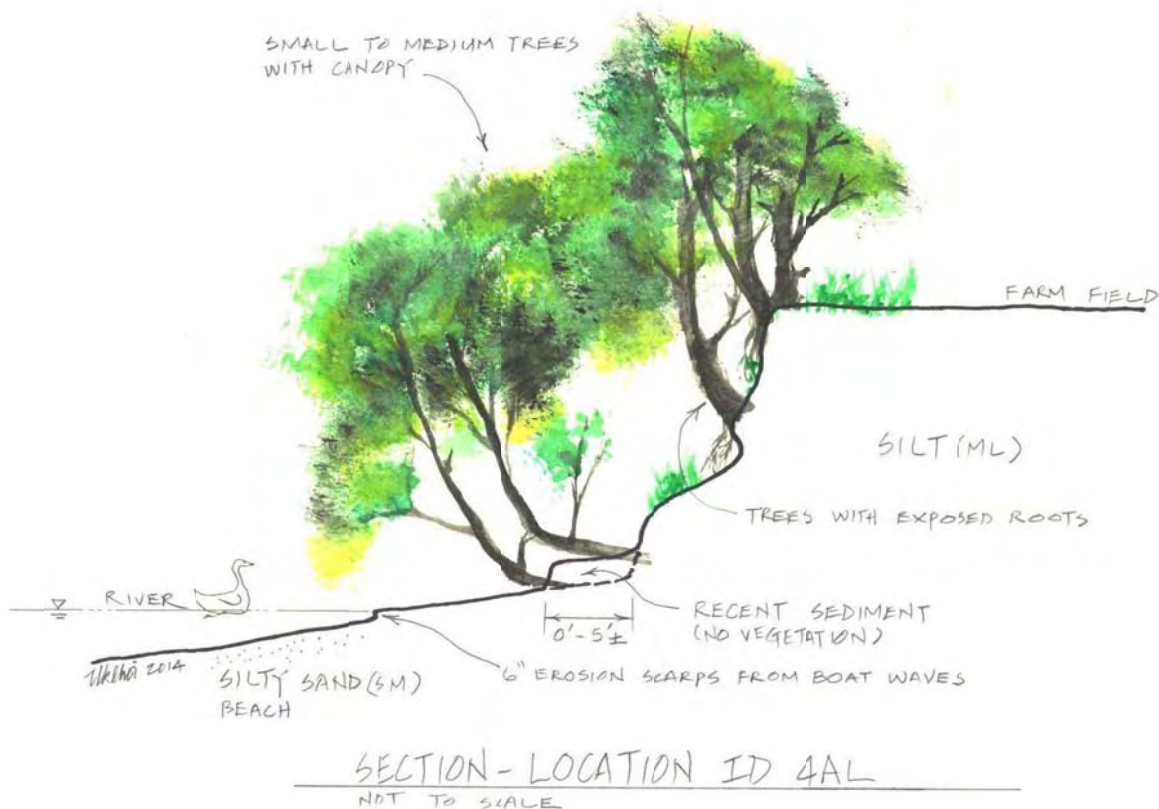 SMALL TO MEDIUM TREES
WITH CANOPY
FARM FIELD
SILT (ML)
TREES WITH EXPOSED ROOTS
RIVER
RECENT SEDIMENT
(NO VEGETATION)
0'-5'±
6" EROSION SCARPS FROM BOAT WAVES
2014
SILTY SAND (SM)
BEACH
SECTION - LOCATION ID 4AL
NOT TO SCALE